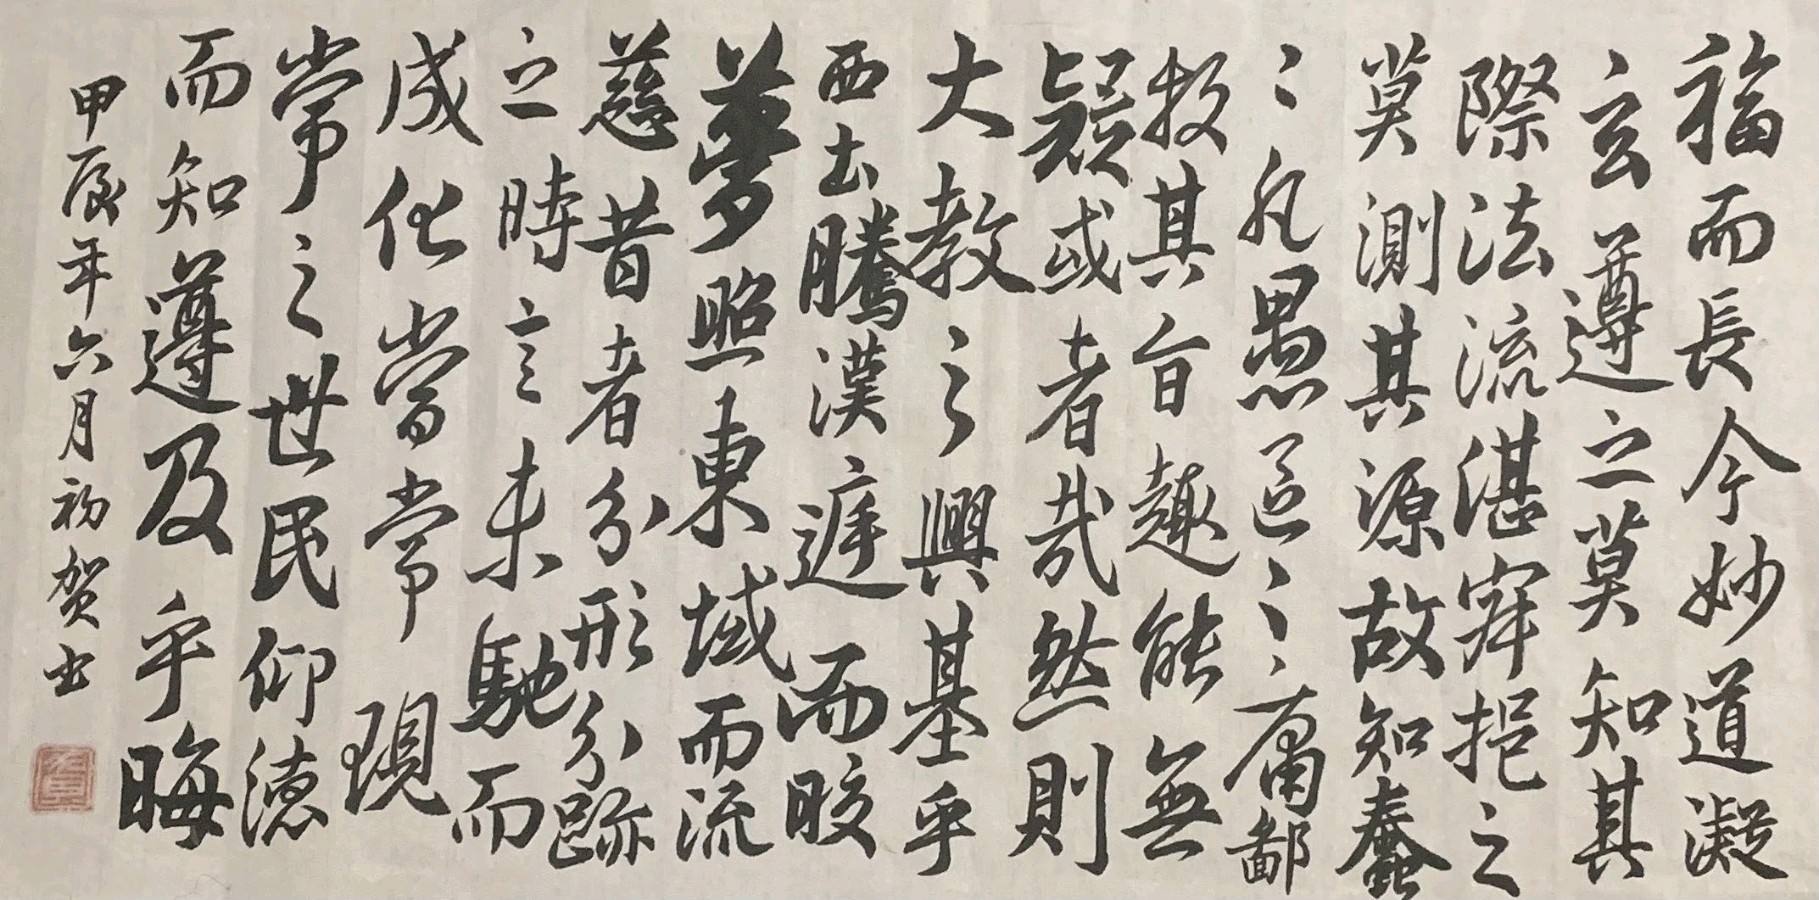 福而長今妙道凝
玄遵之莫知其
際法流湛寂挹之
莫測其源故知蠢
〻凡愚區〻庸鄙
投其旨趣能無
疑或者哉然則
大教之興基乎
西土騰漢庭而皎
夢照東域而流
慈昔者分形分跡
之時言未馳而
成化當常現
常之世民仰德
而知遵及乎晦
甲辰年六月初贺